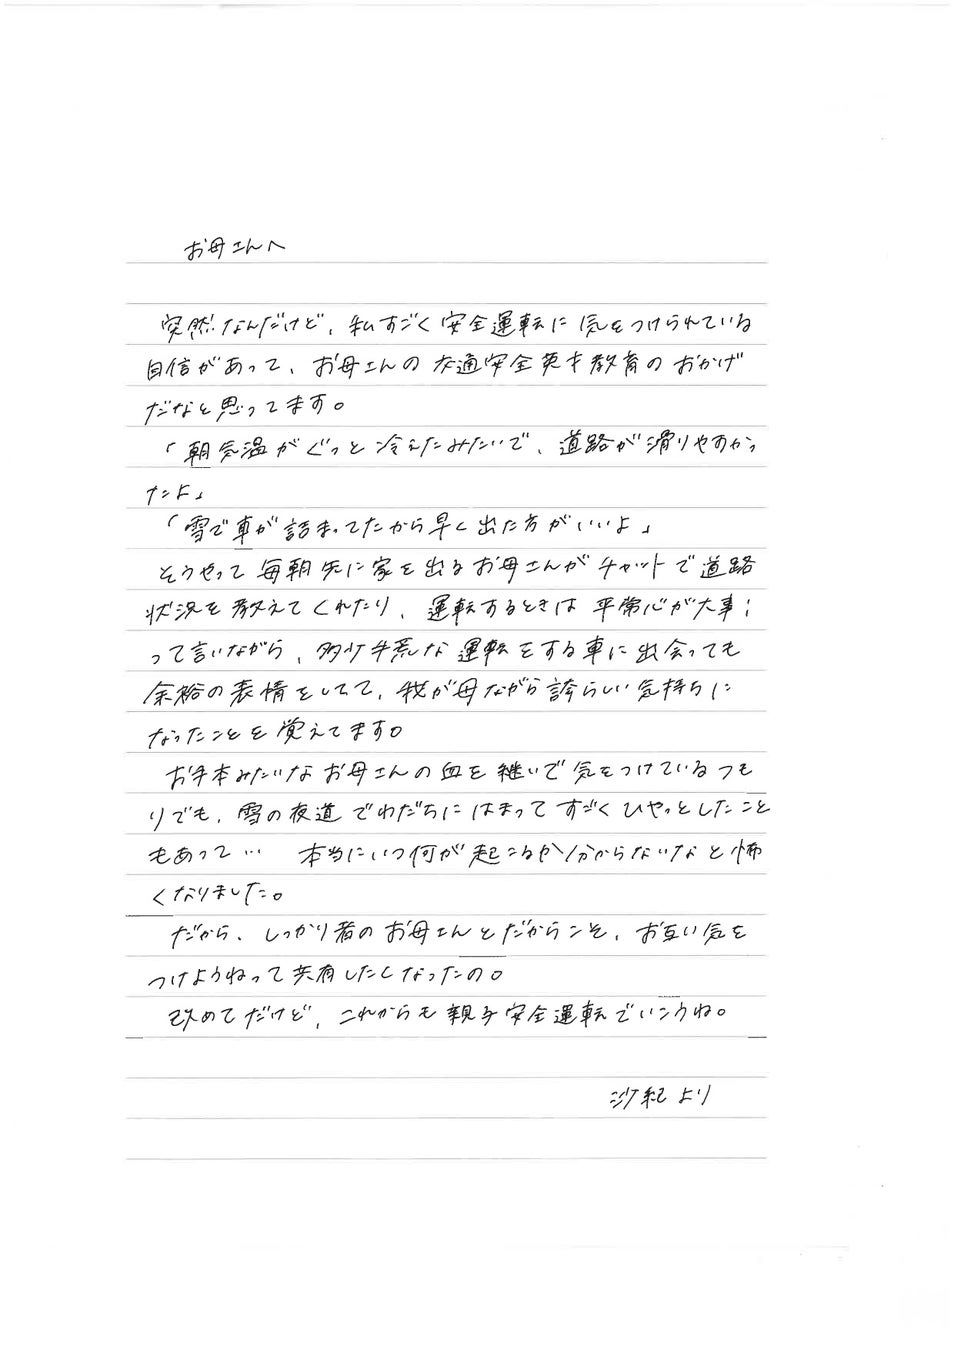 お母さんへ
突然なんだけど、私すごく安全運転に気をつけられている
自信があって、お母さんの交通安全英才教育のおかげ
だなと思ってます。
「朝気温がぐっと冷えたみたいで、道路が滑りやすかっ
たよ」
「雪で車が詰まってたから早く出た方がいいよ」
そうやって毎朝先に家を出るお母さんがチャットで道路
状況を教えてくれたり、運転するときは平常心が大事!
って言いながら、多少手荒な運転をする車に出会っても
余裕の表情をしてて、我が母ながら誇らしい気持ちに
なったことを覚えてます。
お手本みたいなお母さんの血を継いで気をつけているつも
りでも、雪の夜道でわだちにはまってすごくひやっとしたこと
もあって… 本当にいつ何が起こるか分からないなと怖
くなりました。
だから、しっかり者のお母さんとだからこそ、お互い気を
つけようねって共有したくなったの。
改めてだけど、これからも親子安全運転でいこうね。
沙紀より